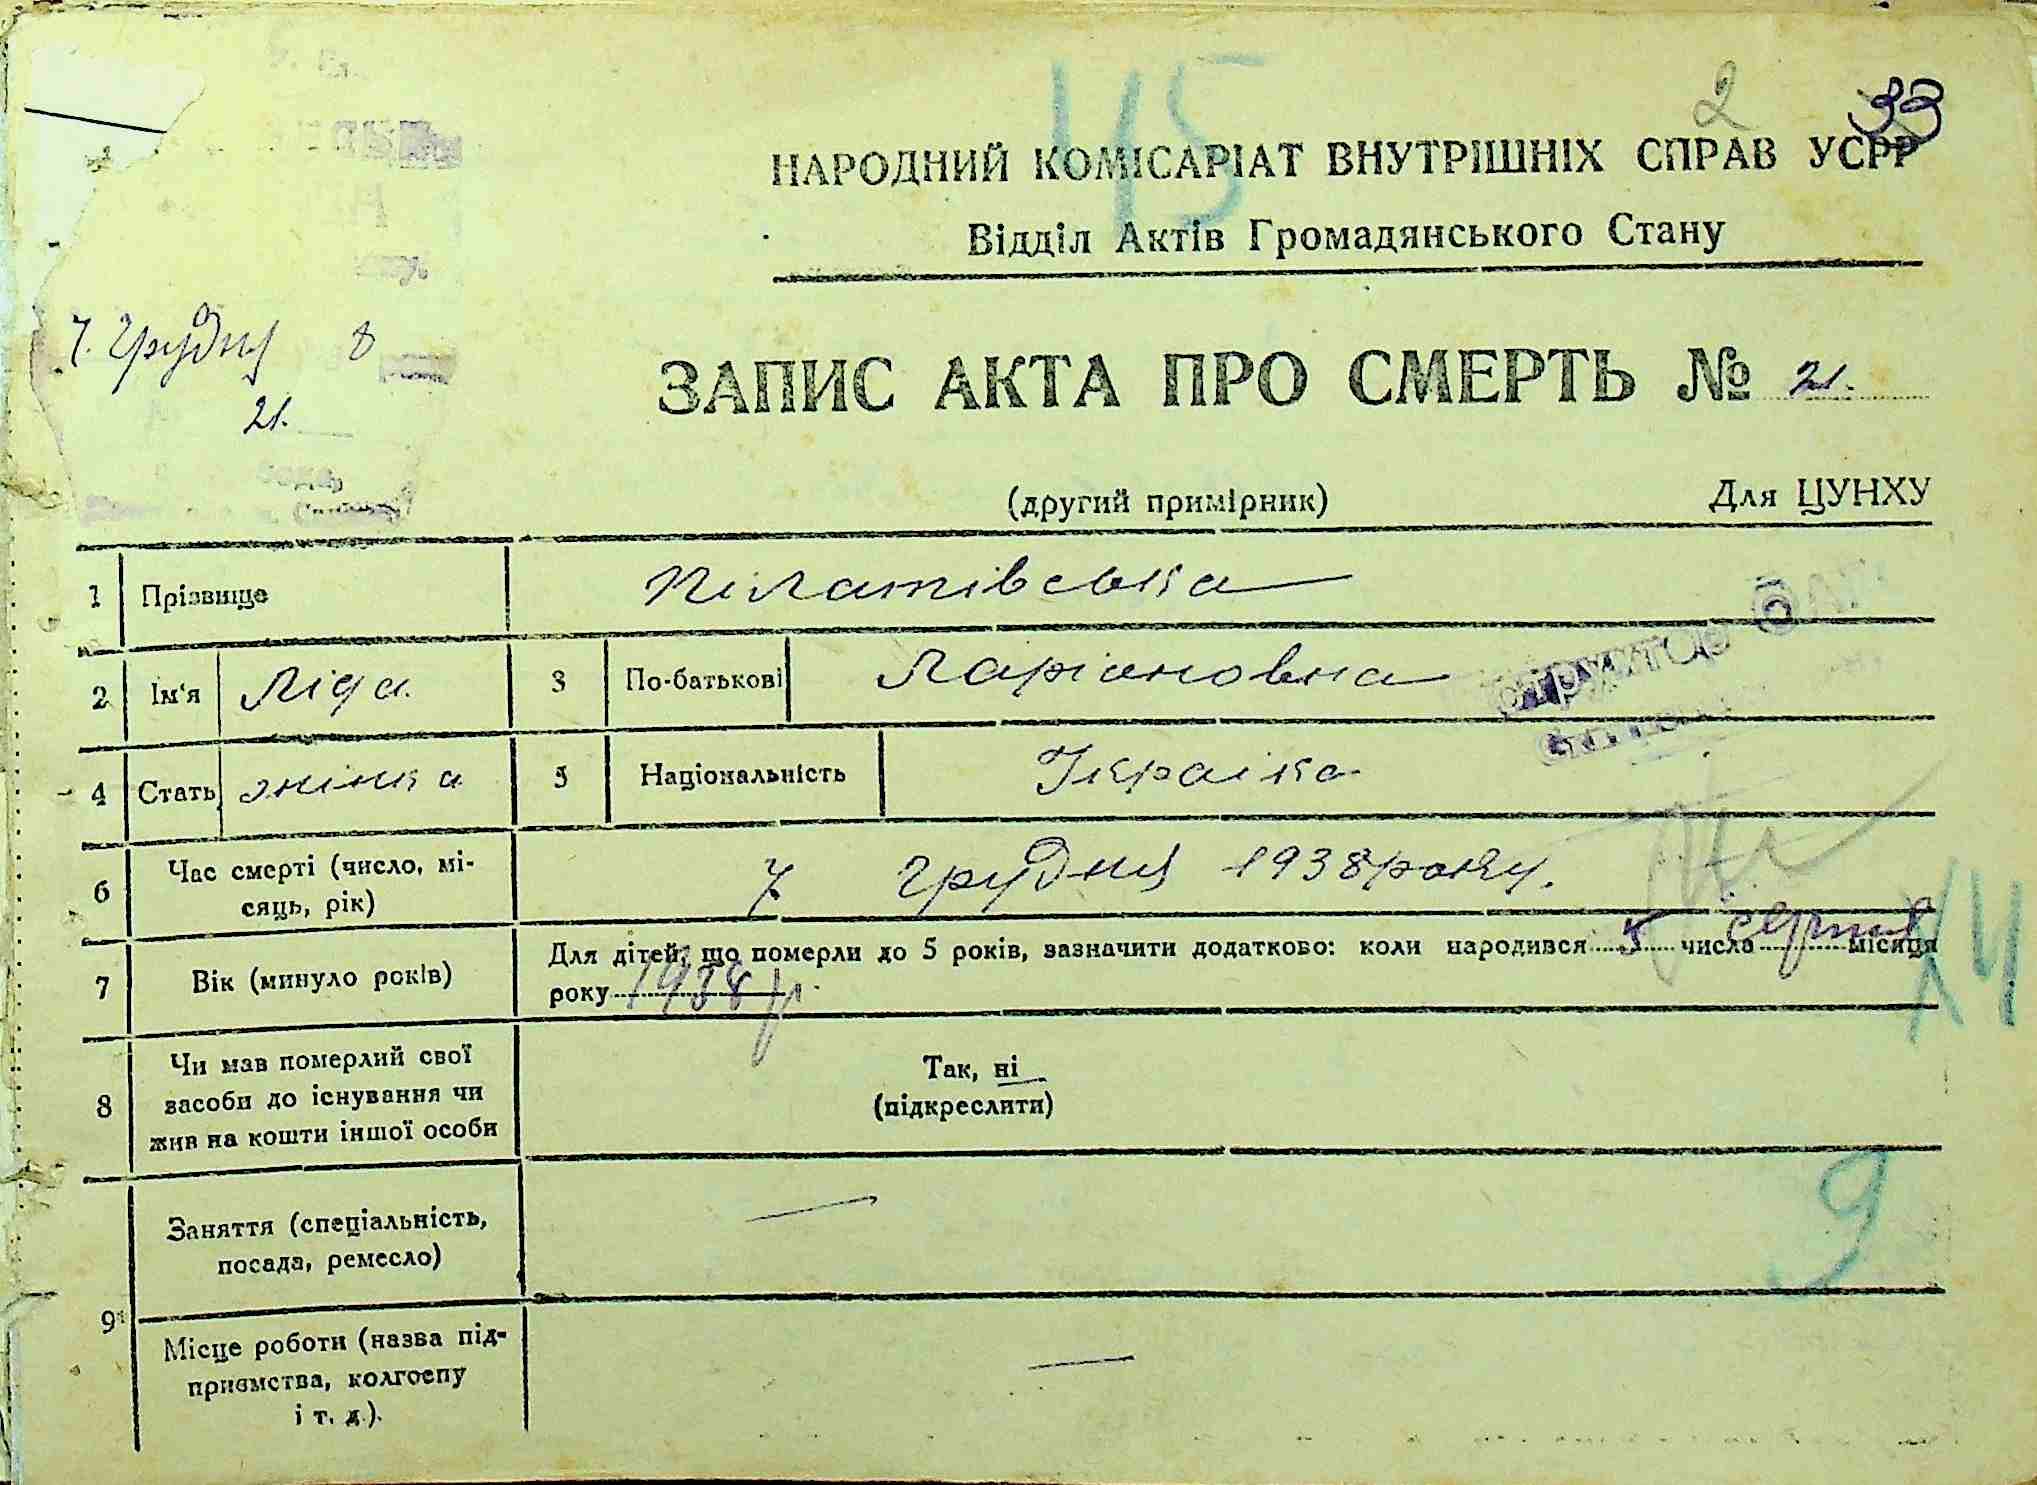 45
2 33
НАРОДНИЙ КОМІСАРІАТ ВНУТРІШНІХ СПРАВ УСРР
Відділ Актів Громадянського Стану
7. Грудня 8
21.
ЗАПИС АКТА ПРО СМЕРТЬ № 21.
(другий примірник) Для ЦУНХУ
1 Прізвище Пілатівська
2 Ім'я Ліда 3 По-батькові Ларіоновна
4 Стать жінка 5 Національність Україка
6 Час смерті (число, мі-
сяць, рік) 7 грудня 1938 року.
7 Вік (минуло років) Для дітей, що померли до 5 років, зазначити додатково: коли народився 5 числа серпня місяця
року 1938 р.
8 Чи мав померлий свої
засоби до існування чи
жив на кошти іншої особи
Так, ні
(підкреслити)
9
Заняття (спеціальність,
посада, ремесло) —
9
Місце роботи (назва під-
приємства, колгоспу
і т. д.). —